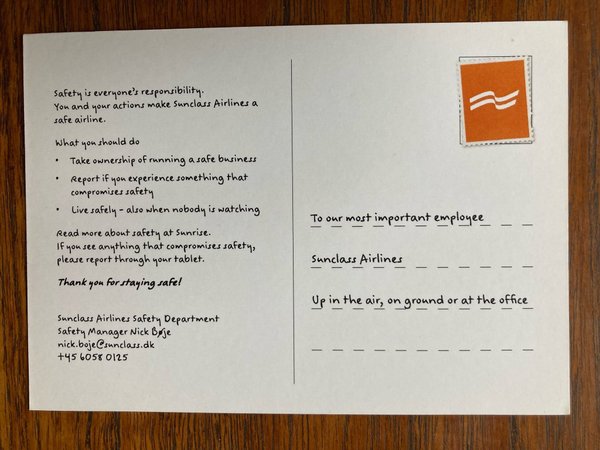 Safety is everyone's responsibility.
You and your actions make Sunclass Airlines a
safe airline.
What you should do
• Take ownership of running a safe business
• Report if you experience something that
compromises safety
• Live safely – also when nobody is watching
Read more about safety at Sunrise.
If you see anything that compromises safety,
please report through your tablet.
Thank you for staying safe!
Sunclass Airlines Safety Department
Safety Manager Nick Bøje
nick.boje@sunclass.dk
+45 6058 0125
To our most important employee
Sunclass Airlines
Up in the air, on ground or at the office